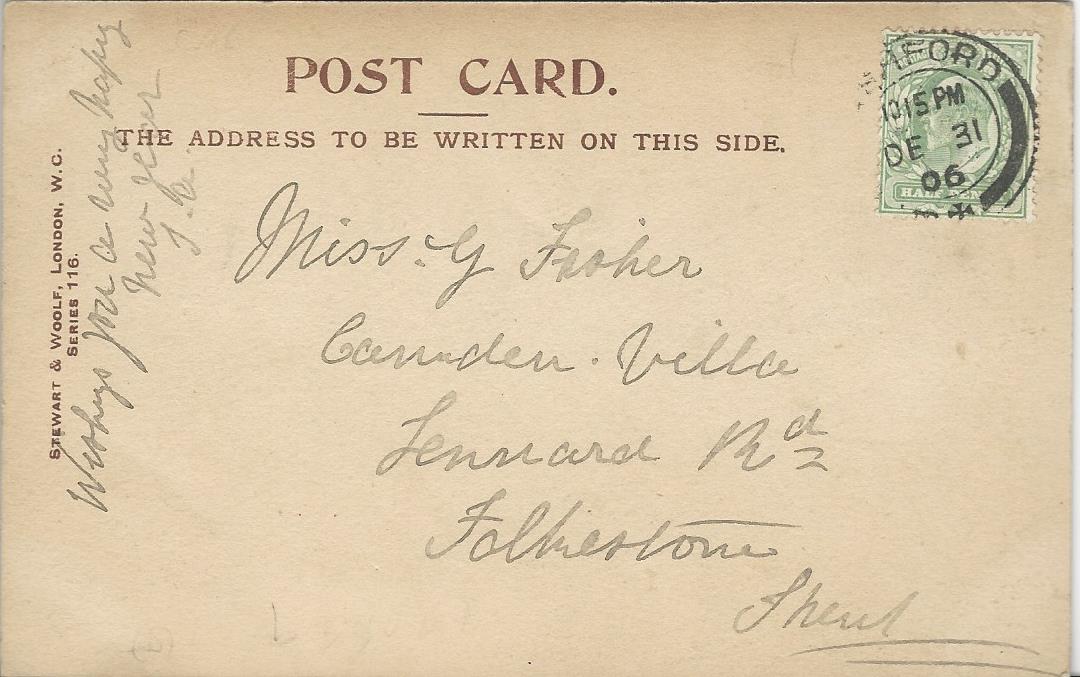 POST CARD.
THE ADDRESS TO BE WRITTEN ON THIS SIDE.
STEWART & WOOLF, LONDON, W.C.
SERIES 116.
Wishing you a very happy
New Year
FORD
10.15 PM
DE 31
06
HALF PEN
Miss. G Fisher
Camden. Villa
Lennard Rd
Folkestone
Kent